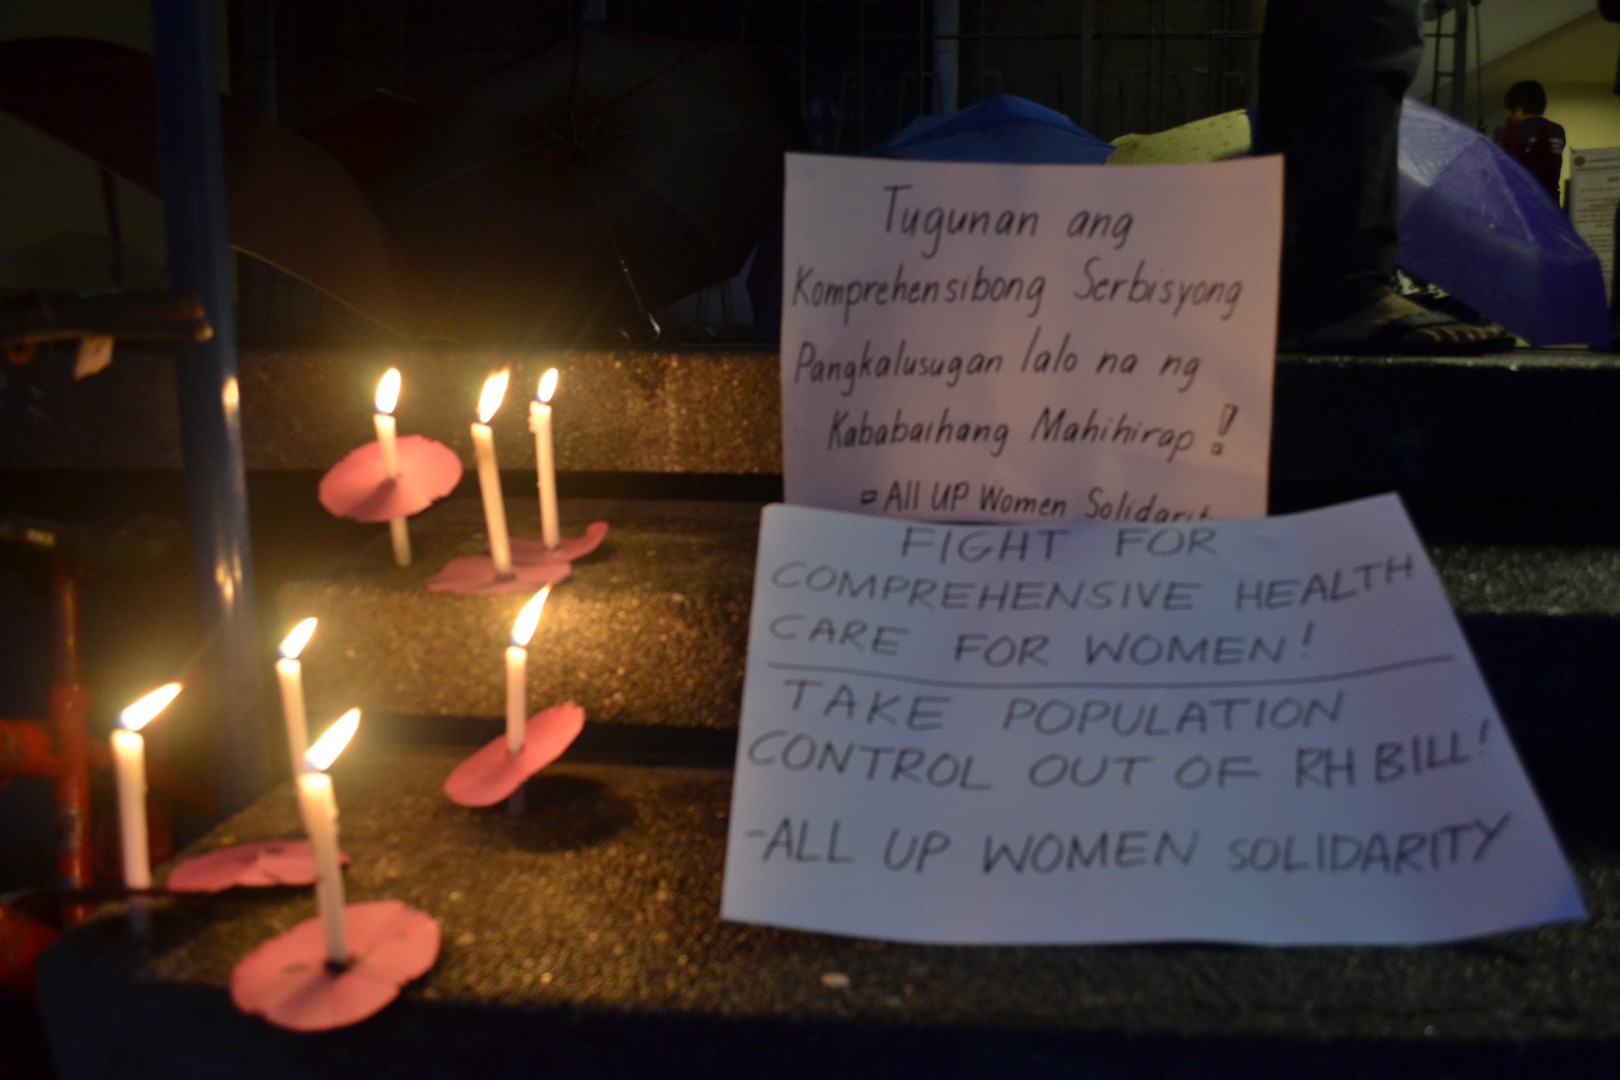 Tugunan ang
Komprehensibong Serbisyong
Pangkalusugan lalo na ng
Kababaihang Mahihirap!
- All UP Women Solidarit
FIGHT FOR
COMPREHENSIVE HEALTH
CARE FOR WOMEN!
TAKE POPULATION
CONTROL OUT OF RH BILL!
-ALL UP WOMEN SOLIDARITY